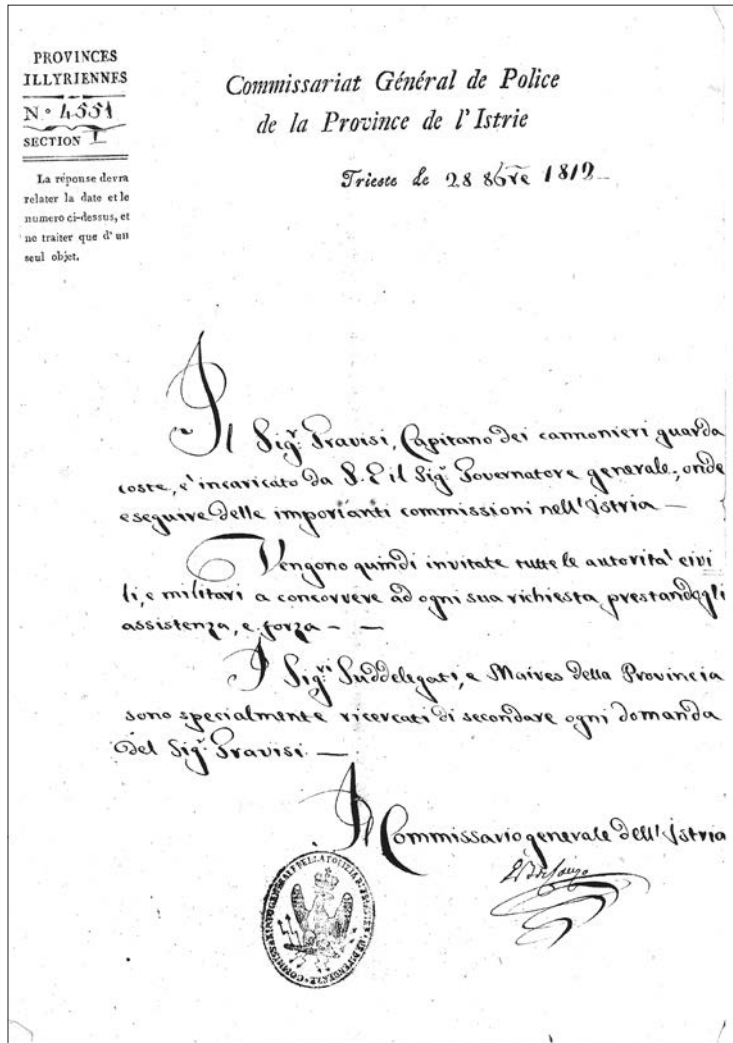 PROVINCES
ILLYRIENNES
N.º 4551
SECTION I
La réponse devra
relater la date et le
numero ci-dessus, et
ne traiter que d'un
seul objet.
Commissariat Général de Police
de la Province de l'Istrie
Trieste le 28 8bre 1812
Il Sigr. Gravisi, Capitano dei cannonieri guarda
coste, e' incaricato da S. E il Sigr. Governatore generale, onde
eseguire delle importanti commissioni nell'Istria —
Vengono quindi invitate tutte le autorita' civi
li, e militari a concorrere ad ogni sua richiesta, prestandogli
assistenza, e forza — —
I Sigri. Suddelegati, e Maires della Provincia
sono specialmente ricercati di secondare ogni domanda
del Sigr. Gravisi —
Il Commissario generale dell'Istria